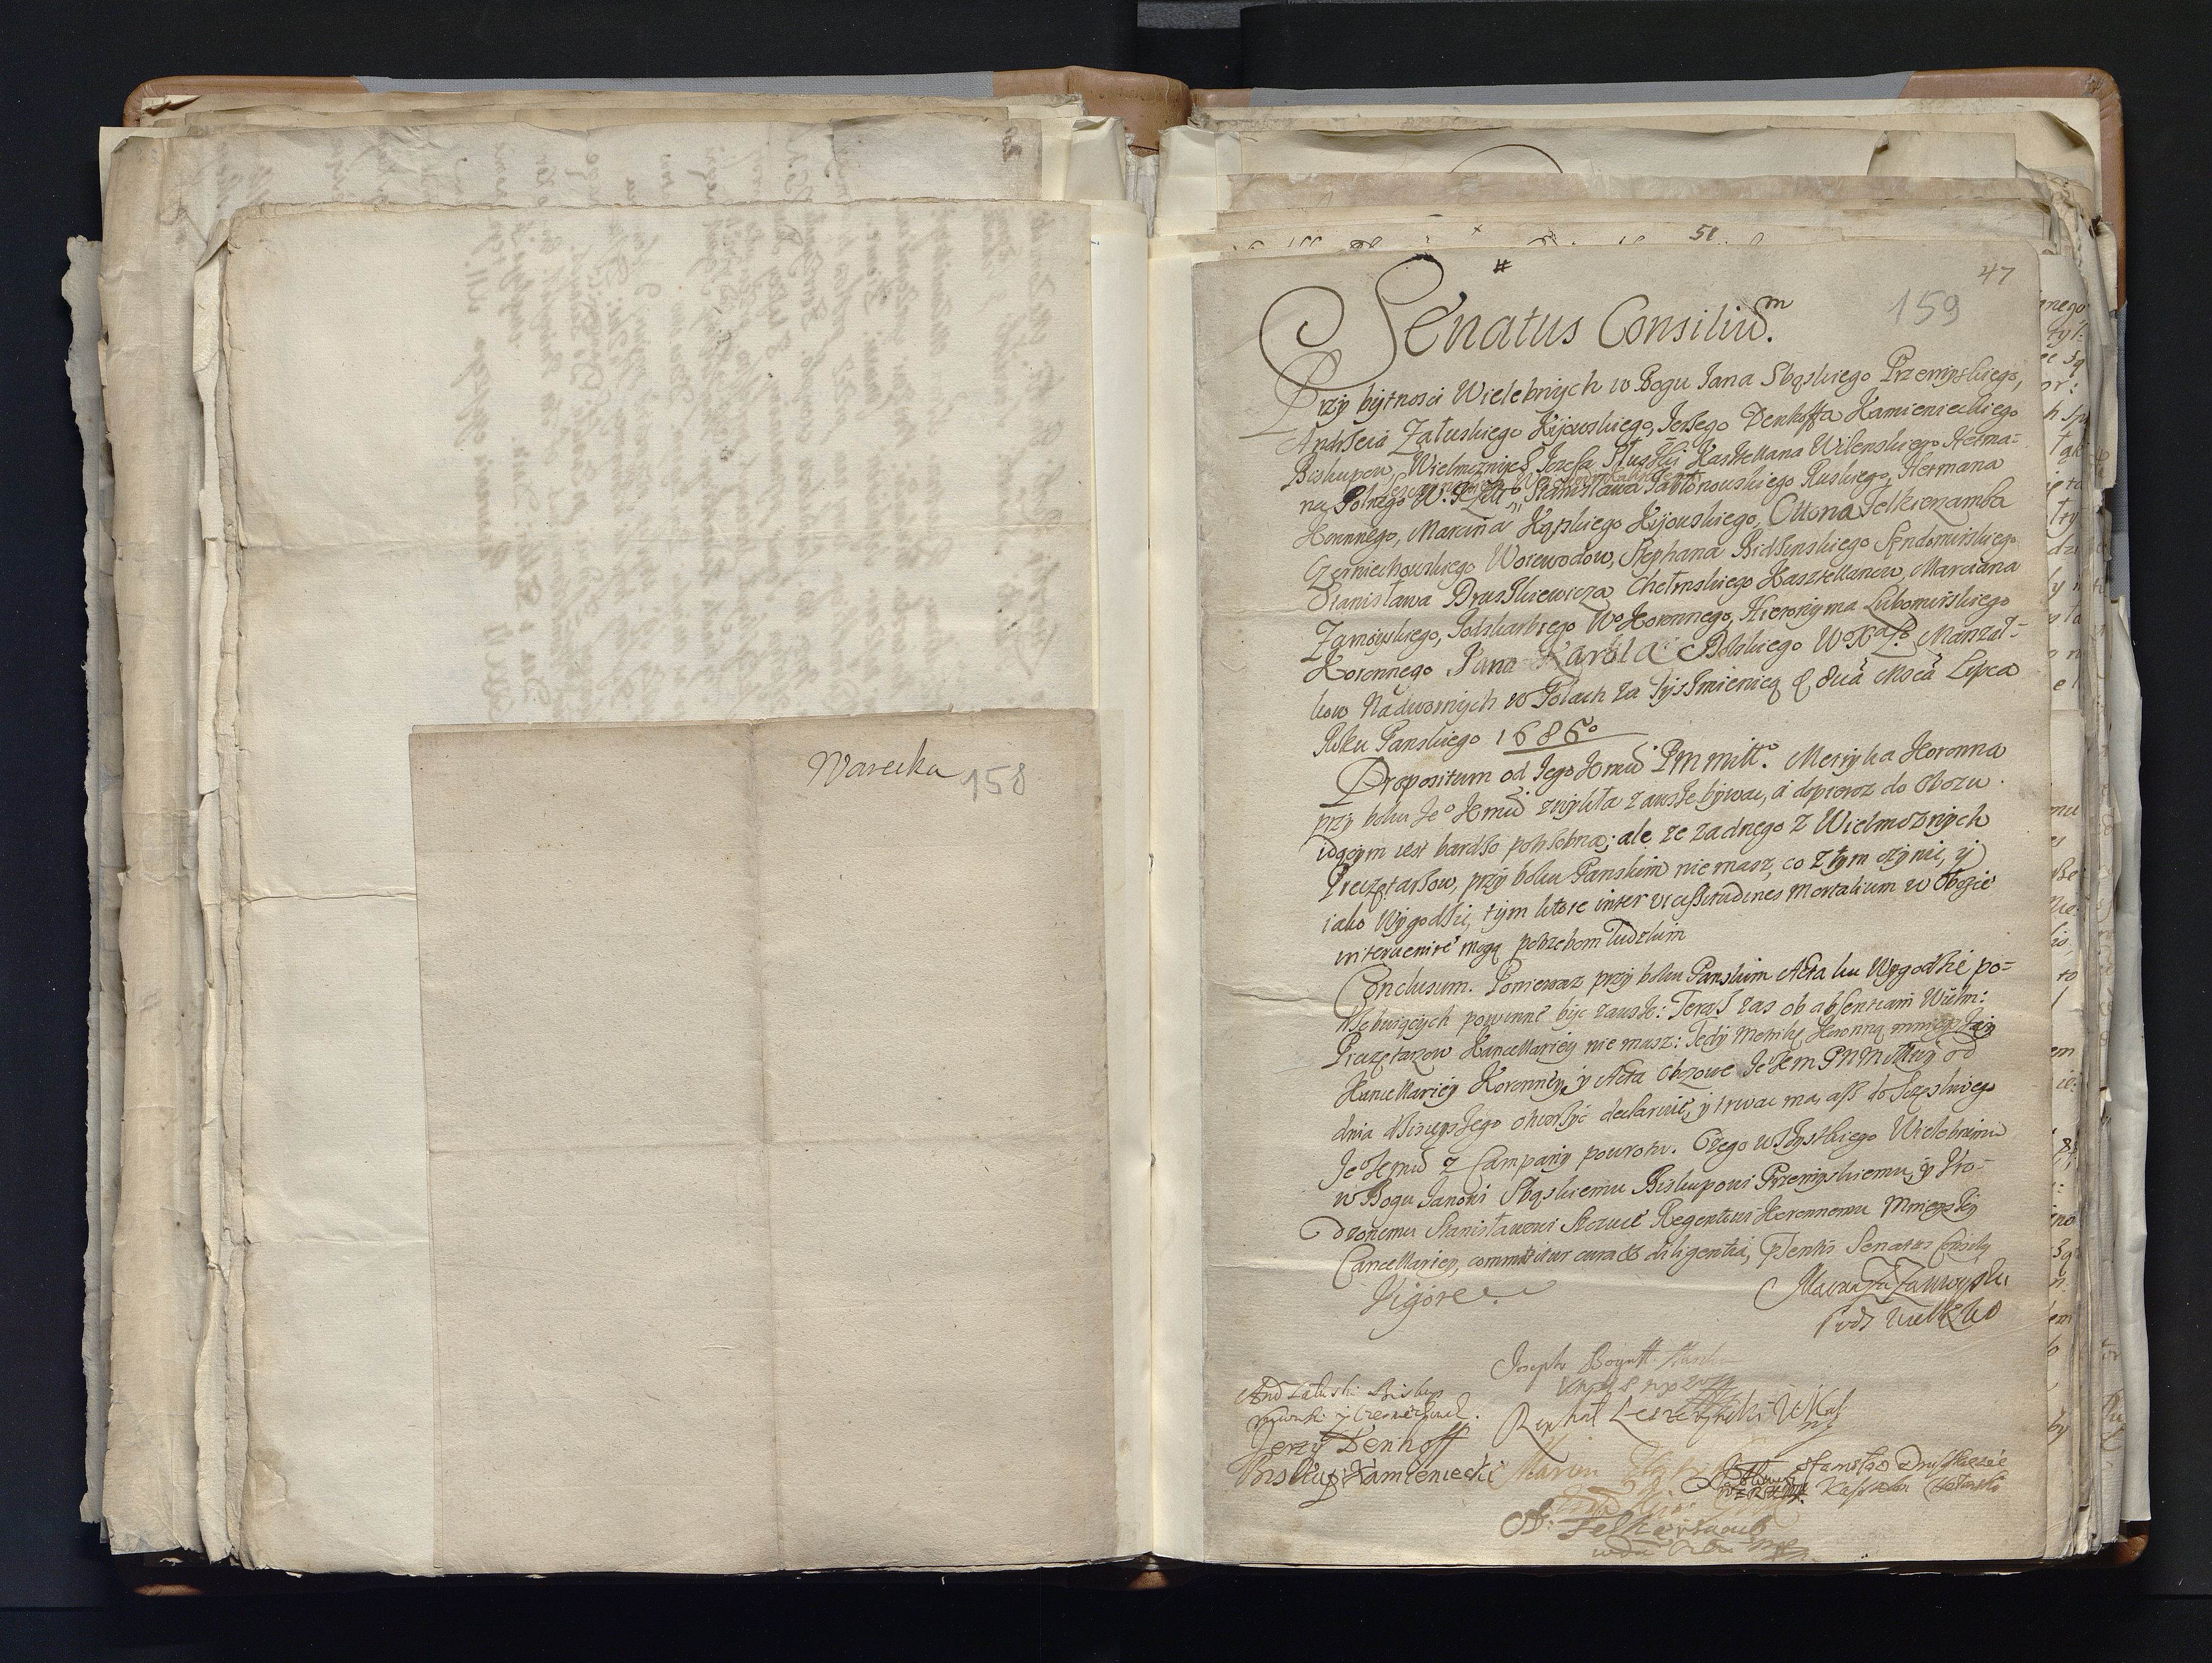 Warecka 158
51
47
159
Senatus Consiliu͠m.
Przy bytnosci Wielebnych w Bogu Jana Sbąskiego Przemyskiego,
Andrzeia Załuskiego Kijowskiego, Jerzego Denhoffa Kamienieckiego
Biskupow, Wielmoznych Jozefa Słuszki Kasztellana Wilenskiego Hetma=
na Polnego W. X Litt° Stanisława Jabłonowskiego Ruskiego, Hetmana
Koronnego, Marcina Kątskiego Kijowskiego, Ottona Felkierzamba
Czerniechowskiego Woiewodow, Stephana Bidzinskiego Sendomirskiego
Stanisława Druszkiewicza Chełmskiego Kasztellanow, Marciana
Zamoyskiego, Podskarbiego W° Koronnego, Hieronyma Lubomirskiego
Koronnego Jana Karola Dolskiego W° X° L° Marszał=
kow Nadwornych w Polach za Tyśmienicą d. 8ua Mca Lipca
Roku Panskiego 1686°
Propositum od Jego Kmci P m mitt°. Metryka Koronna
przy boku Je° Kmci zwykła zawsze bywac, a dopieroz do Obozu
idącym iest bardzo potrzebna; ale ze zadnego z Wielmoznych
Pieczętarzow, przy boku Panskim nie masz, co z tym czynic, y
iako Wygodzic, tym ktore inter vicissitudines mortalium w Obozie
intervenire mogą potrzebom ludzkim
Conclusum. Poniewaz przy boku Panskim Acta ku Wygodzie po=
trzebuiących powinne byc zawsze: Teraz zas ob absentiam Wielm:
Pieczętarzow Kancellariey nie masz: Tedy Metrikę Koronną mnieyszey
Kancellariey Koronney, y Acta Obozowe Je° Kem P N M Mwy od
dnia dzisieyszego otworzyc declaruie, y trwac ma, asz do szczęsliwego
Je° Kmci z Campaniy powrotu. Czego wszystkiego Wielebnemu
w Bogu Janowi Sbąskiemu Biskupowi Przemyskiemu, y Uro=
dzonemu Stanisławowi Szczuce Regentowi Koronnemu Mnieyszey
Cancellariey, committitur cura et diligentia, pntis Senatus Consily
Vigore.
Marcin Zamoyski
Pods Wielk Ko
Joseph Bogusł Słuszka
And Załuski Biskup
Kijowski y Czerniechow.
Raphał Leszczynski
Jerzy Denhoff
Biskup Kamieniecki
Marcin Kątski
Stanisław Druszkiewic
Kasztelan Chełmski
O. Felkersamb